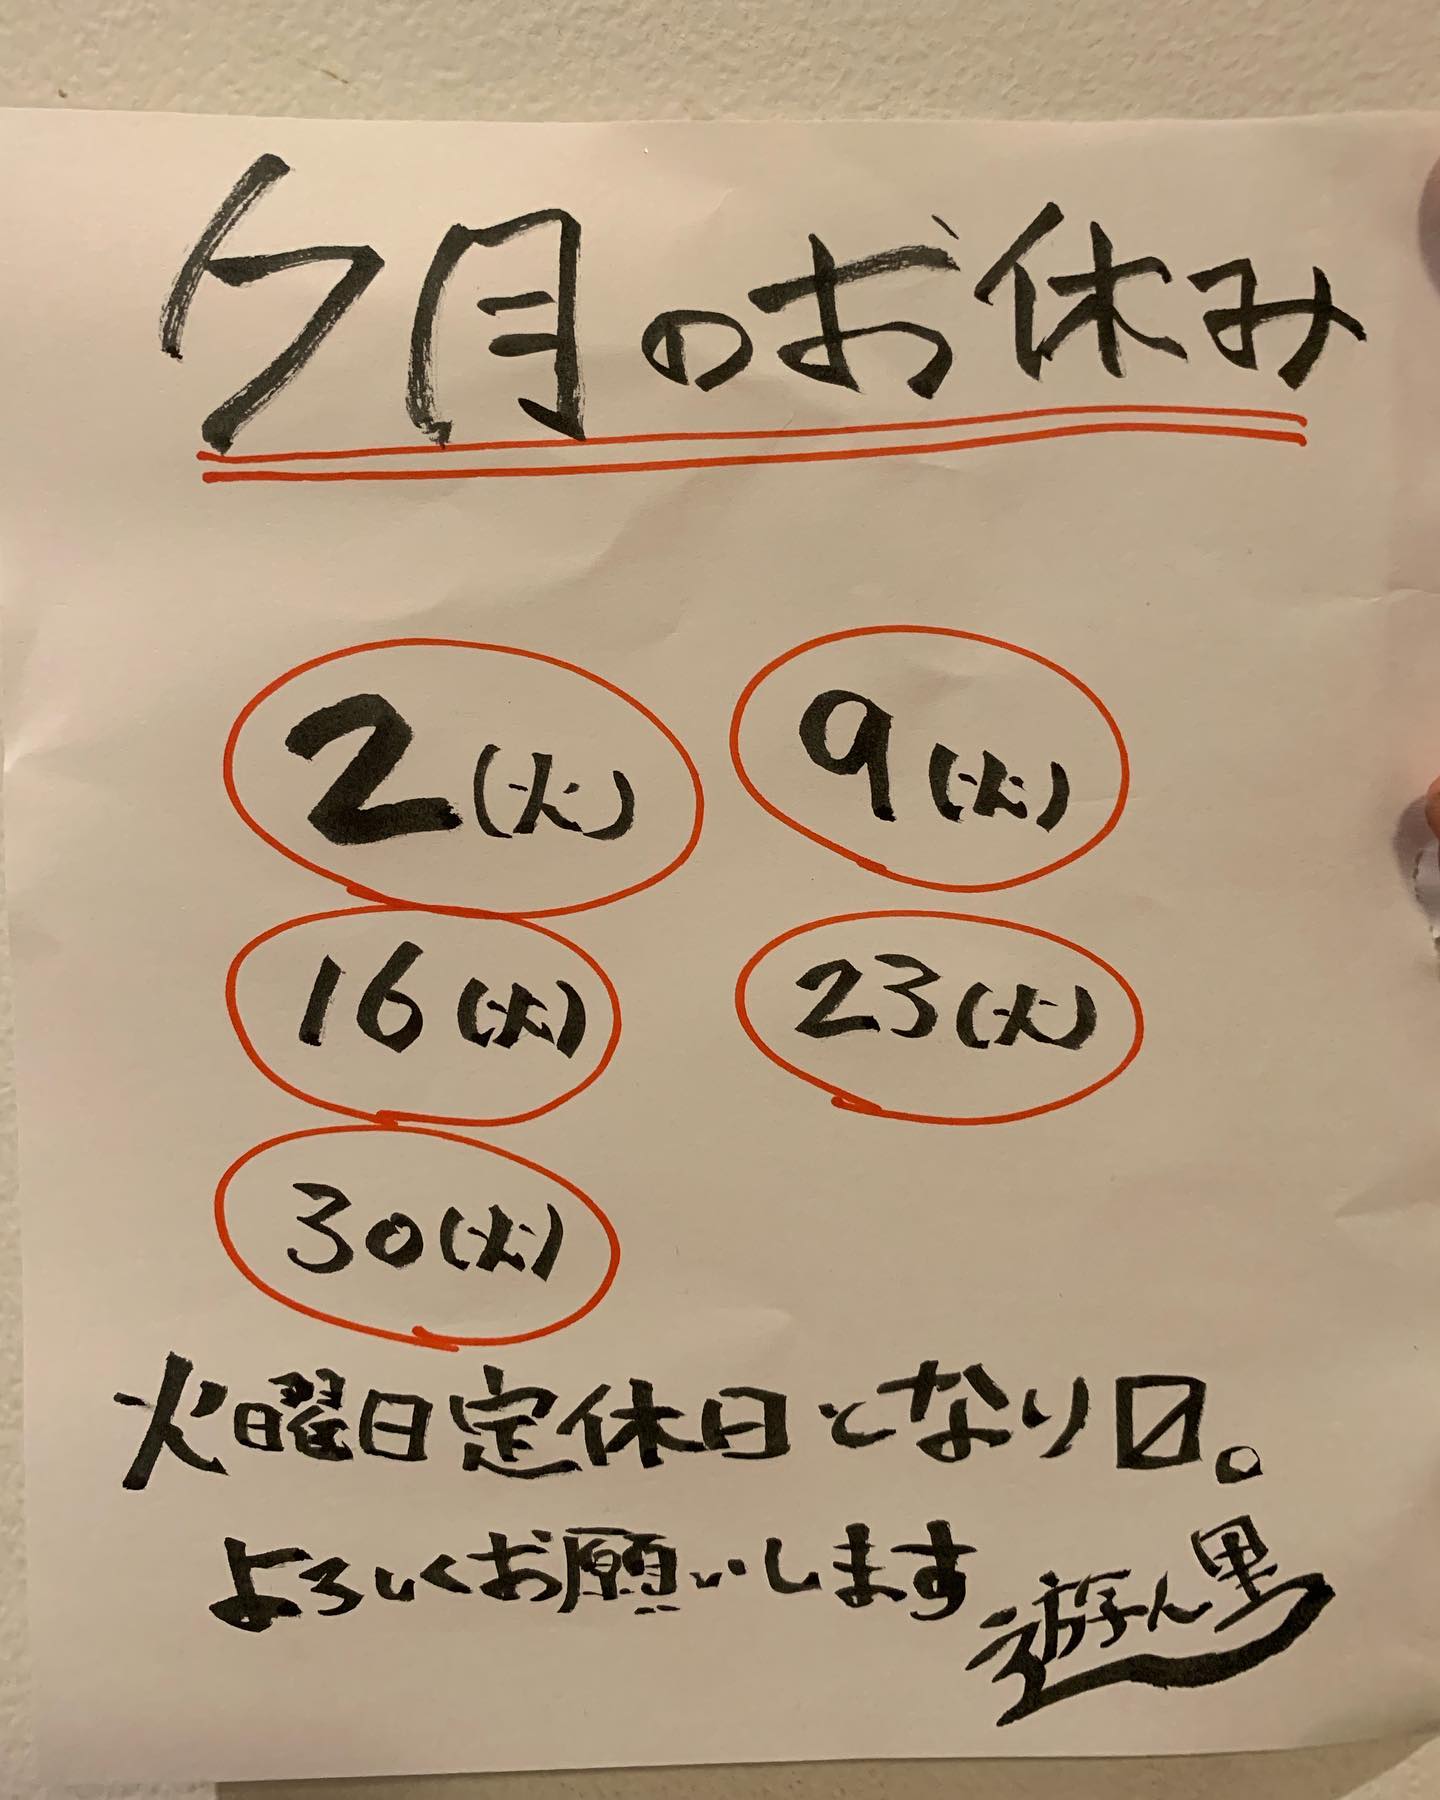 7月のお休み
2(火) 9(火)
16(火) 23(火)
30(火)
火曜日定休日となり〼。
よろしくお願いします
遊ん里